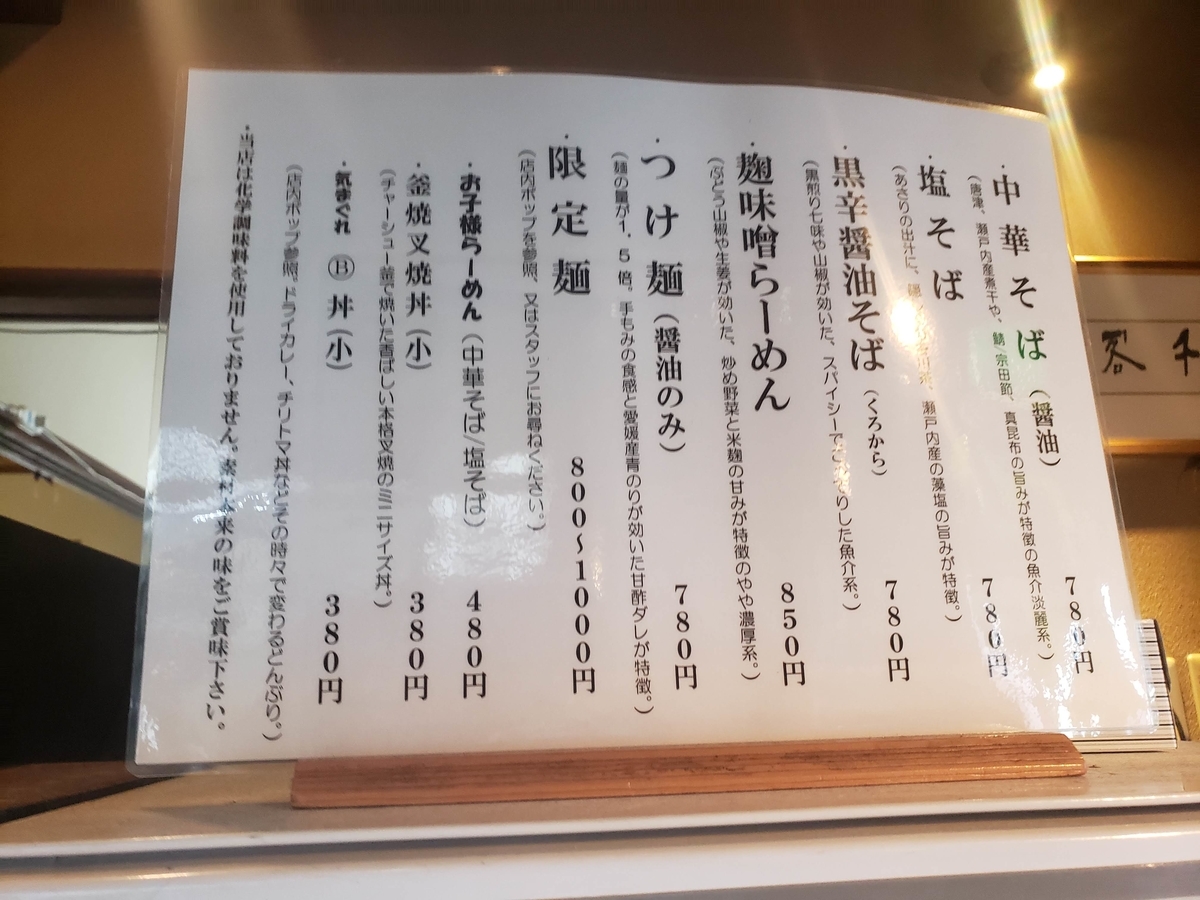 ・中華そば（醤油） 780円
（唐津、瀬戸内産煮干や、鯖/宗田節、真昆布の旨みが特徴の魚介淡麗系。）
・塩そば 780円
（あさりの出汁に、 瀬戸内産の藻塩の旨みが特徴。）
・黒辛醤油そば（くろから） 780円
（黒煎り七味や山椒が効いた、スパイシーで りした魚介系。）
・麹味噌らーめん 850円
（ぶどう山椒や生姜が効いた、炒め野菜と米麹の甘みが特徴のやや濃厚系。）
・つけ麺（醤油のみ） 780円
（麺の量が1．5倍。手もみの食感と愛媛産青のりが効いた甘酢ダレが特徴。）
・限定麺 800〜1000円
（店内ポップを参照、又はスタッフにお尋ねください。）
・お子様らーめん（中華そば/塩そば） 480円
・釜焼叉焼丼（小） 380円
（チャーシュー釜で焼いた香ばしい本格叉焼のミニサイズ丼。）
・気まぐれ Ⓑ丼（小） 380円
（店内ポップ参照、ドライカレー、チリトマ丼などその時々で変わるどんぶり。）
・当店は化学調味料を使用しておりません。素材本来の味をご賞味下さい。